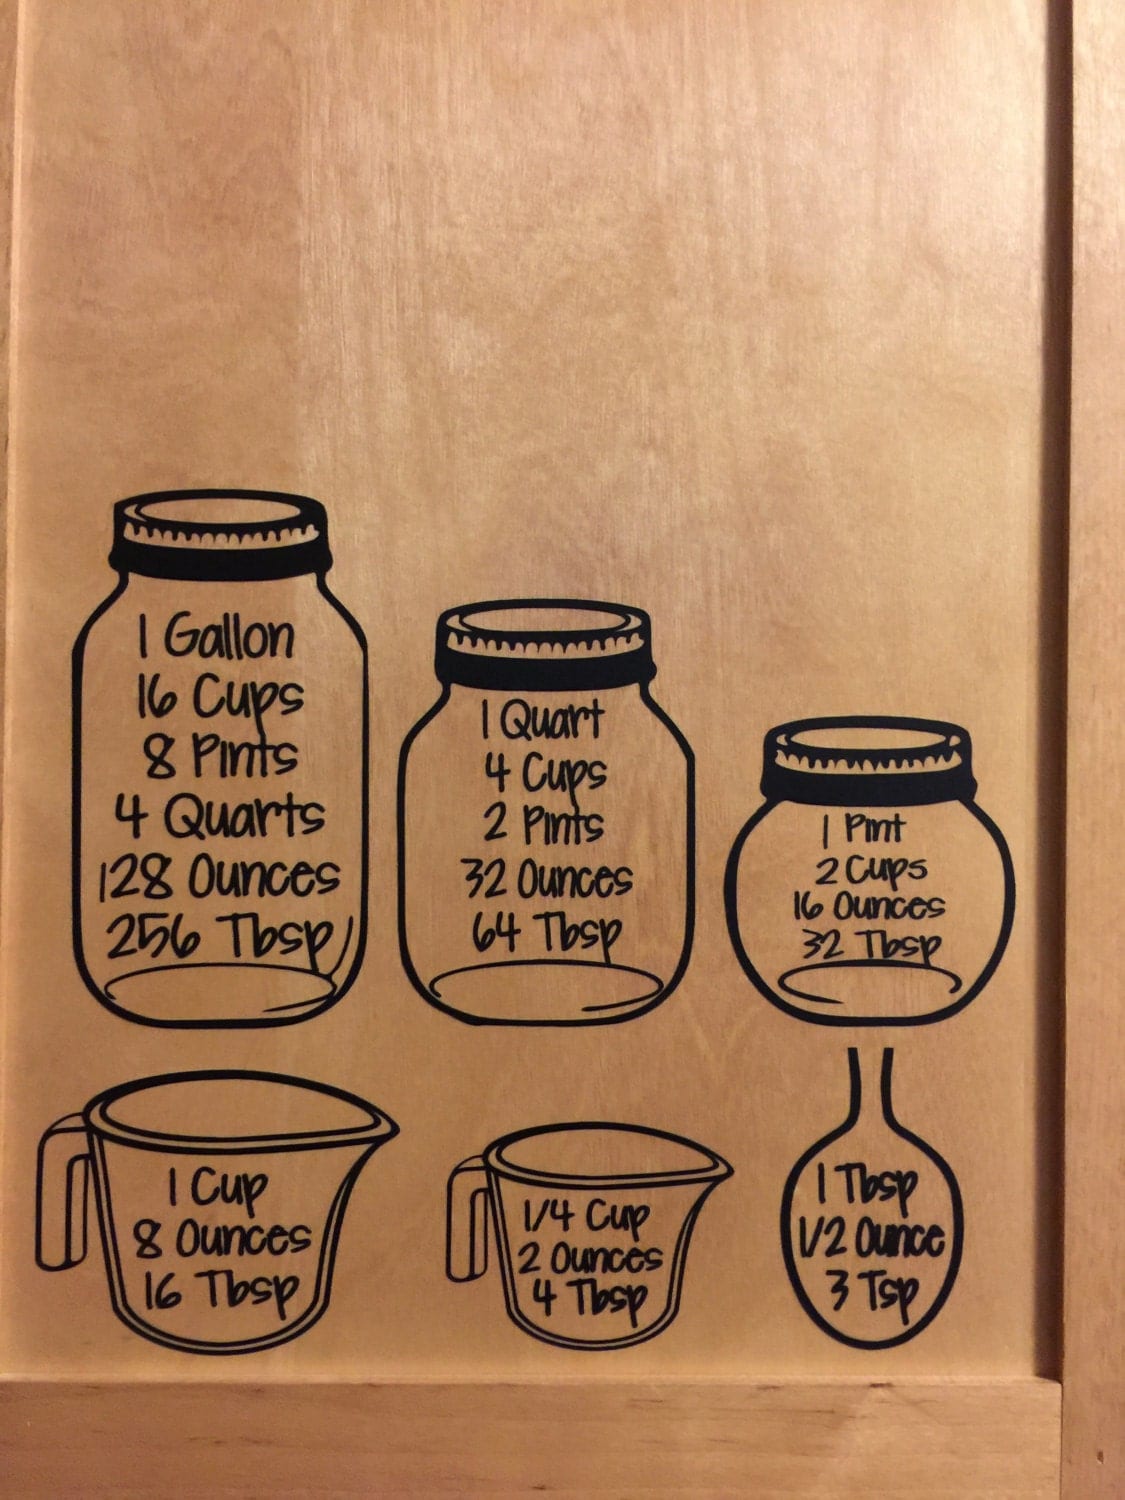 1 Gallon
16 Cups
8 Pints
4 Quarts
128 Ounces
256 Tbsp
1 Quart
4 Cups
2 Pints
32 Ounces
64 Tbsp
1 Pint
2 Cups
16 Ounces
32 Tbsp
1 Cup
8 Ounces
16 Tbsp
1/4 Cup
2 Ounces
4 Tbsp
1 Tbsp
1/2 Ounce
3 Tsp